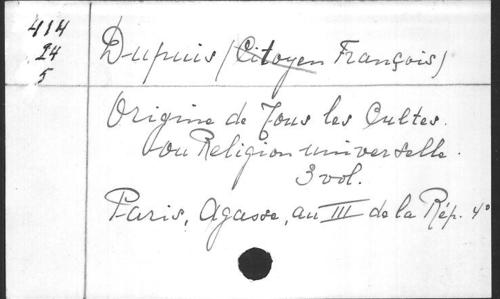 414
24
5
Dupuis (Citoyen François)
Origine de Tous les Cultes.
ou Religion universelle.
3 vol.
Paris, Agasse, au III de la Rép. 4°